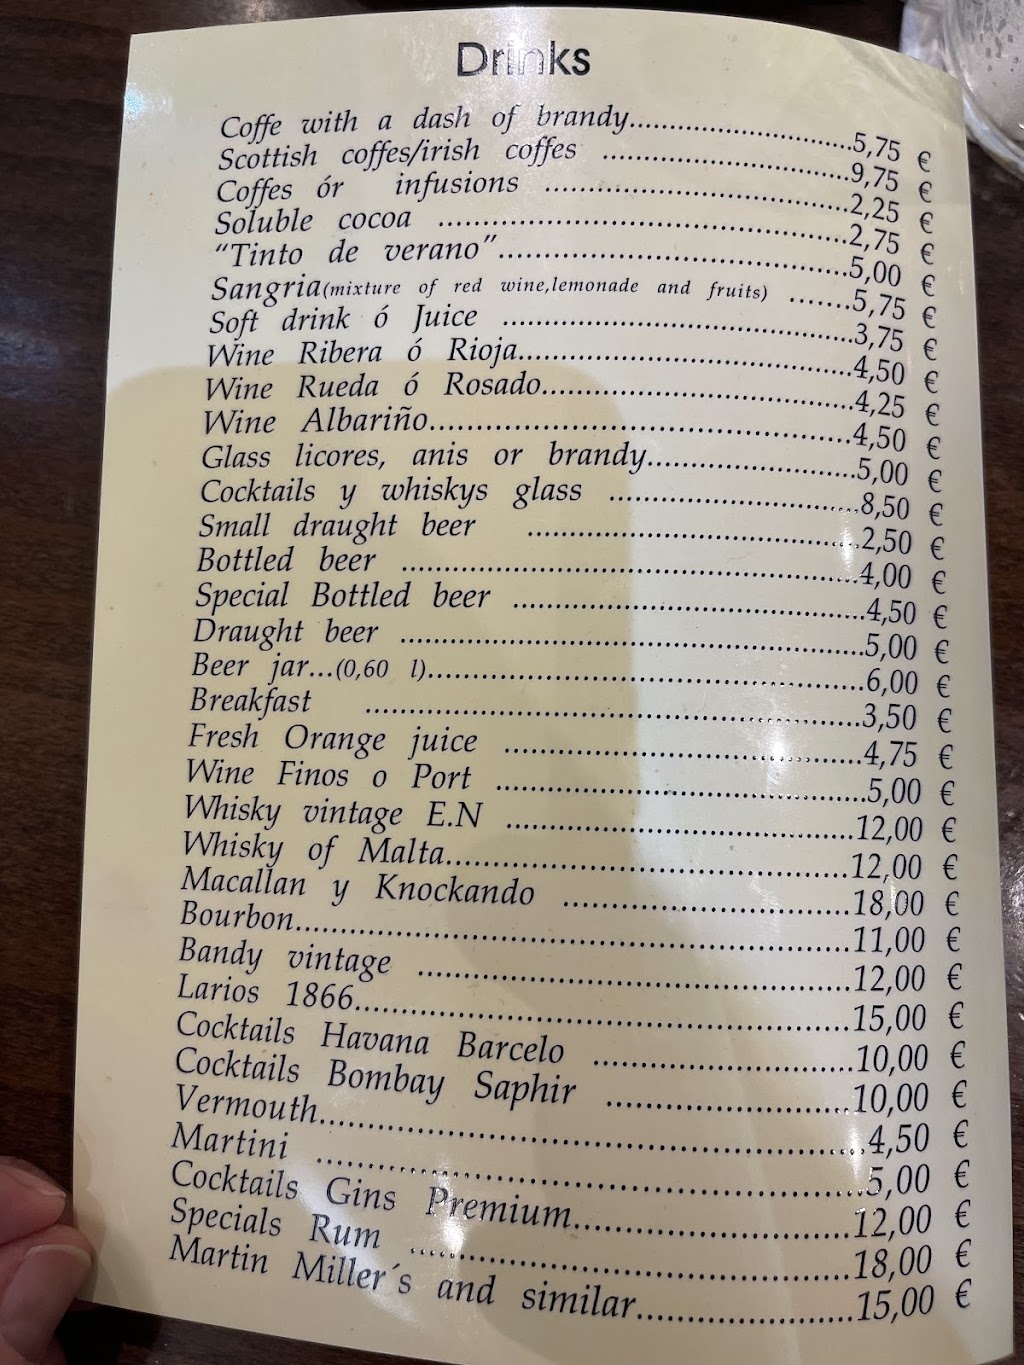 Drinks
Coffe with a dash of brandy..........................5,75 €
Scottish coffes/irish coffes ..............................9,75 €
Coffes ór infusions ....................................2,25 €
Soluble cocoa ................................................2,75 €
“Tinto de verano”........................................5,00 €
Sangria(mixture of red wine,lemonade and fruits) .......5,75 €
Soft drink ó Juice ..........................................3,75 €
Wine Ribera ó Rioja........................................4,50 €
Wine Rueda ó Rosado......................................4,25 €
Wine Albariño..................................................4,50 €
Glass licores, anis or brandy..........................5,00 €
Cocktails y whiskys glass ..............................8,50 €
Small draught beer ........................................2,50 €
Bottled beer ......................................................4,00 €
Special Bottled beer ..........................................4,50 €
Draught beer ....................................................5,00 €
Beer jar...(0,60 l)..................................................6,00 €
Breakfast ..........................................................3,50 €
Fresh Orange juice ..........................................4,75 €
Wine Finos o Port ..........................................5,00 €
Whisky vintage E.N ........................................12,00 €
Whisky of Malta..............................................12,00 €
Macallan y Knockando ..................................18,00 €
Bourbon............................................................11,00 €
Bandy vintage ..................................................12,00 €
Larios 1866......................................................15,00 €
Cocktails Havana Barcelo ..............................10,00 €
Cocktails Bombay Saphir ..............................10,00 €
Vermouth..........................................................4,50 €
Martini ............................................................5,00 €
Cocktails Gins Premium..................................12,00 €
Specials Rum ..................................................18,00 €
Martin Miller´s and similar..........................15,00 €